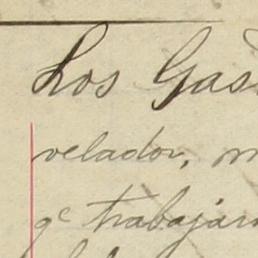 Los Gas
velador, m
qe trabajar